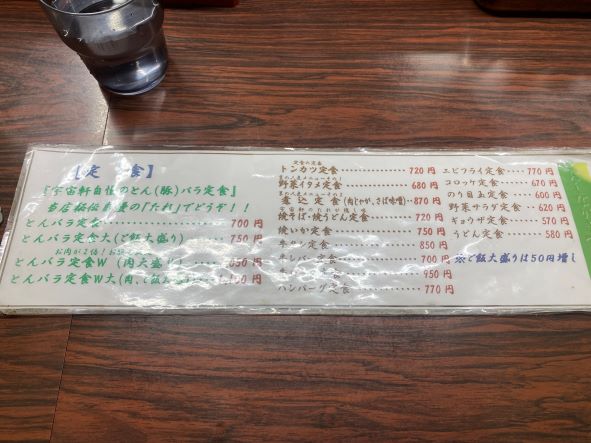 【定 食】
『宇宙軒自慢のとん(豚)バラ定食』
当店秘伝自慢の「たれ」でどうぞ!!
とんバラ定食‥‥‥‥‥‥700円
とんバラ定食大(ご飯大盛り) 750円
お肉が2倍!
とんバラ定食W (肉大盛り)
とんバラ定食W大(肉、ご飯
定食の定番
トンカツ定食‥‥‥‥‥‥720円
野菜イタメ定食‥‥‥‥‥680円
煮込定食(肉じゃが、さば味噌)‥870円
焼そば・焼うどん定食 720円
焼いか定食 750円
定食 850円
レバー定食 700円
定食 950円
ハンバーグ定食 770円
エビフライ定食‥‥770円
コロッケ定食‥‥‥670円
のり目玉定食‥‥‥600円
野菜サラダ定食‥‥620円
ギョウザ定食‥‥‥570円
うどん定食‥‥‥‥580円
※ご飯大盛りは50円増し